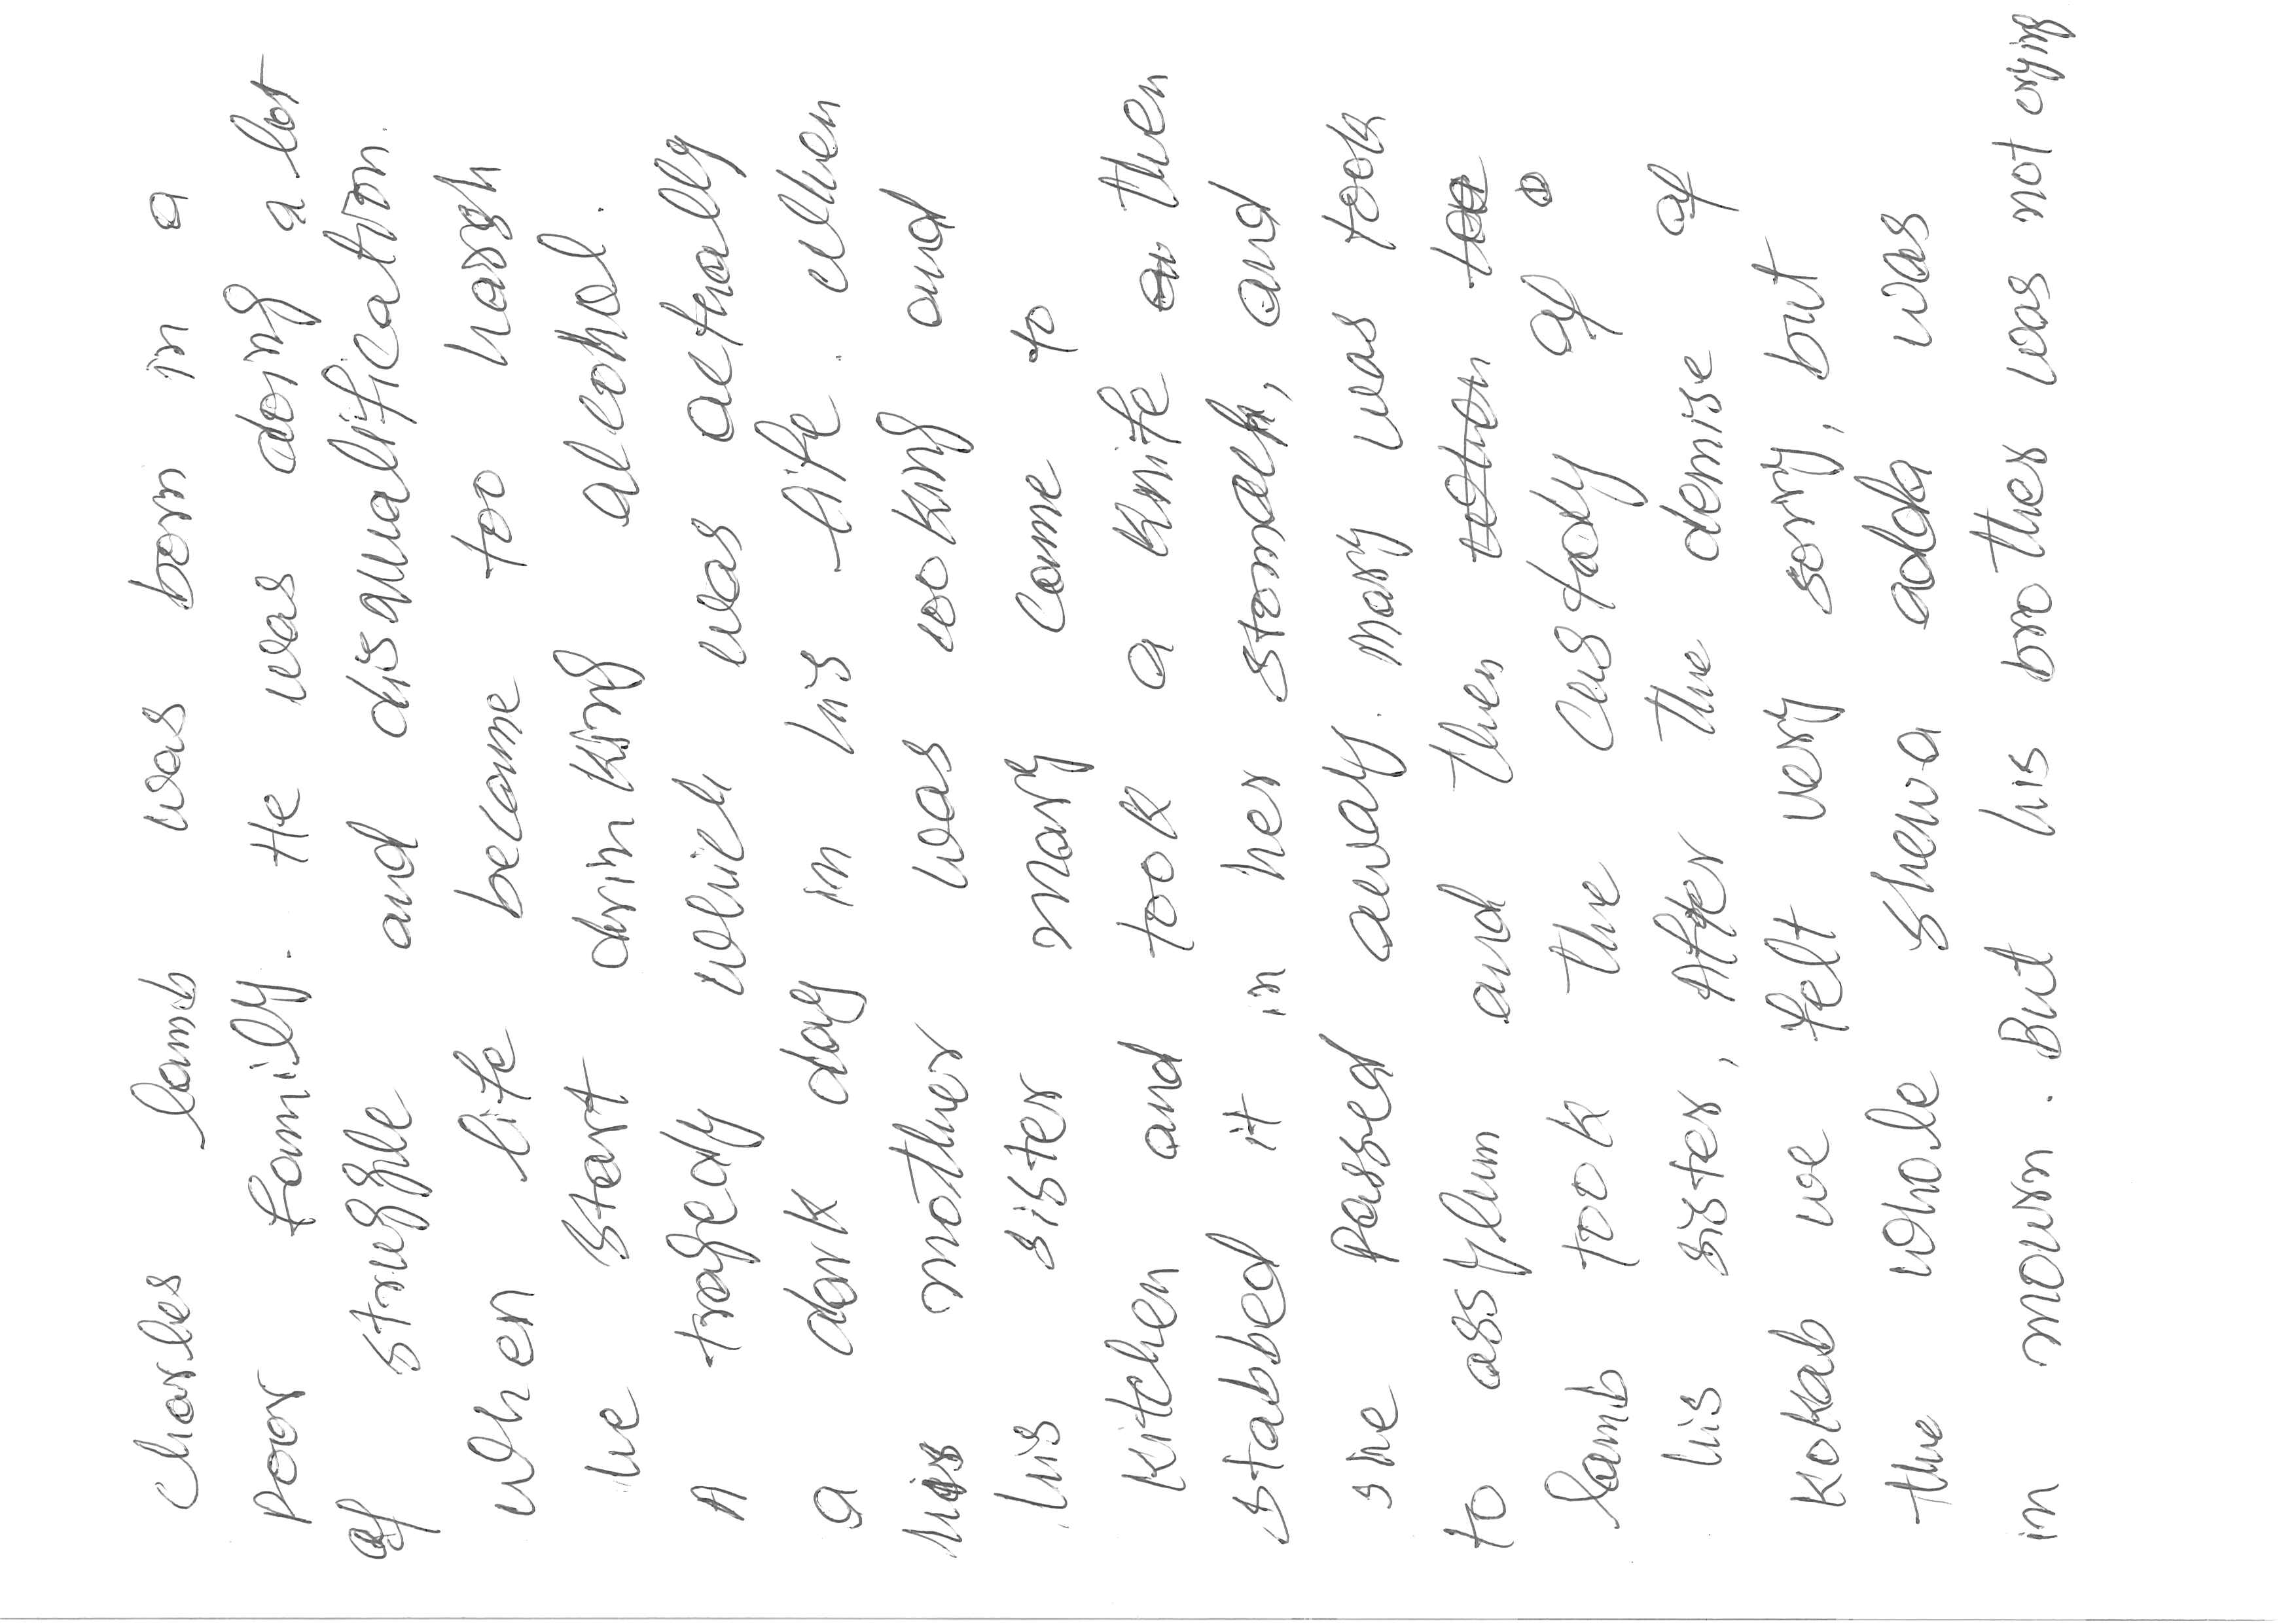 Charles lamb was born in a
poor family. He was doing a lot
of struggle and disqualification.
when life became too harsh
he start drinking alcohol.
A tragedy which was actually
a dark day in his life. When
his mother was cooking and
his sister mary came to
kitchen and took a knife then
stabbed it in her stomach, and
she passed away. mary was took
to assylum and then
lamb took the custody of
his sister, After the demise of
Kokab we felt very sorry, but
the whole shewa adda was
in mourn. But his brother was not crying